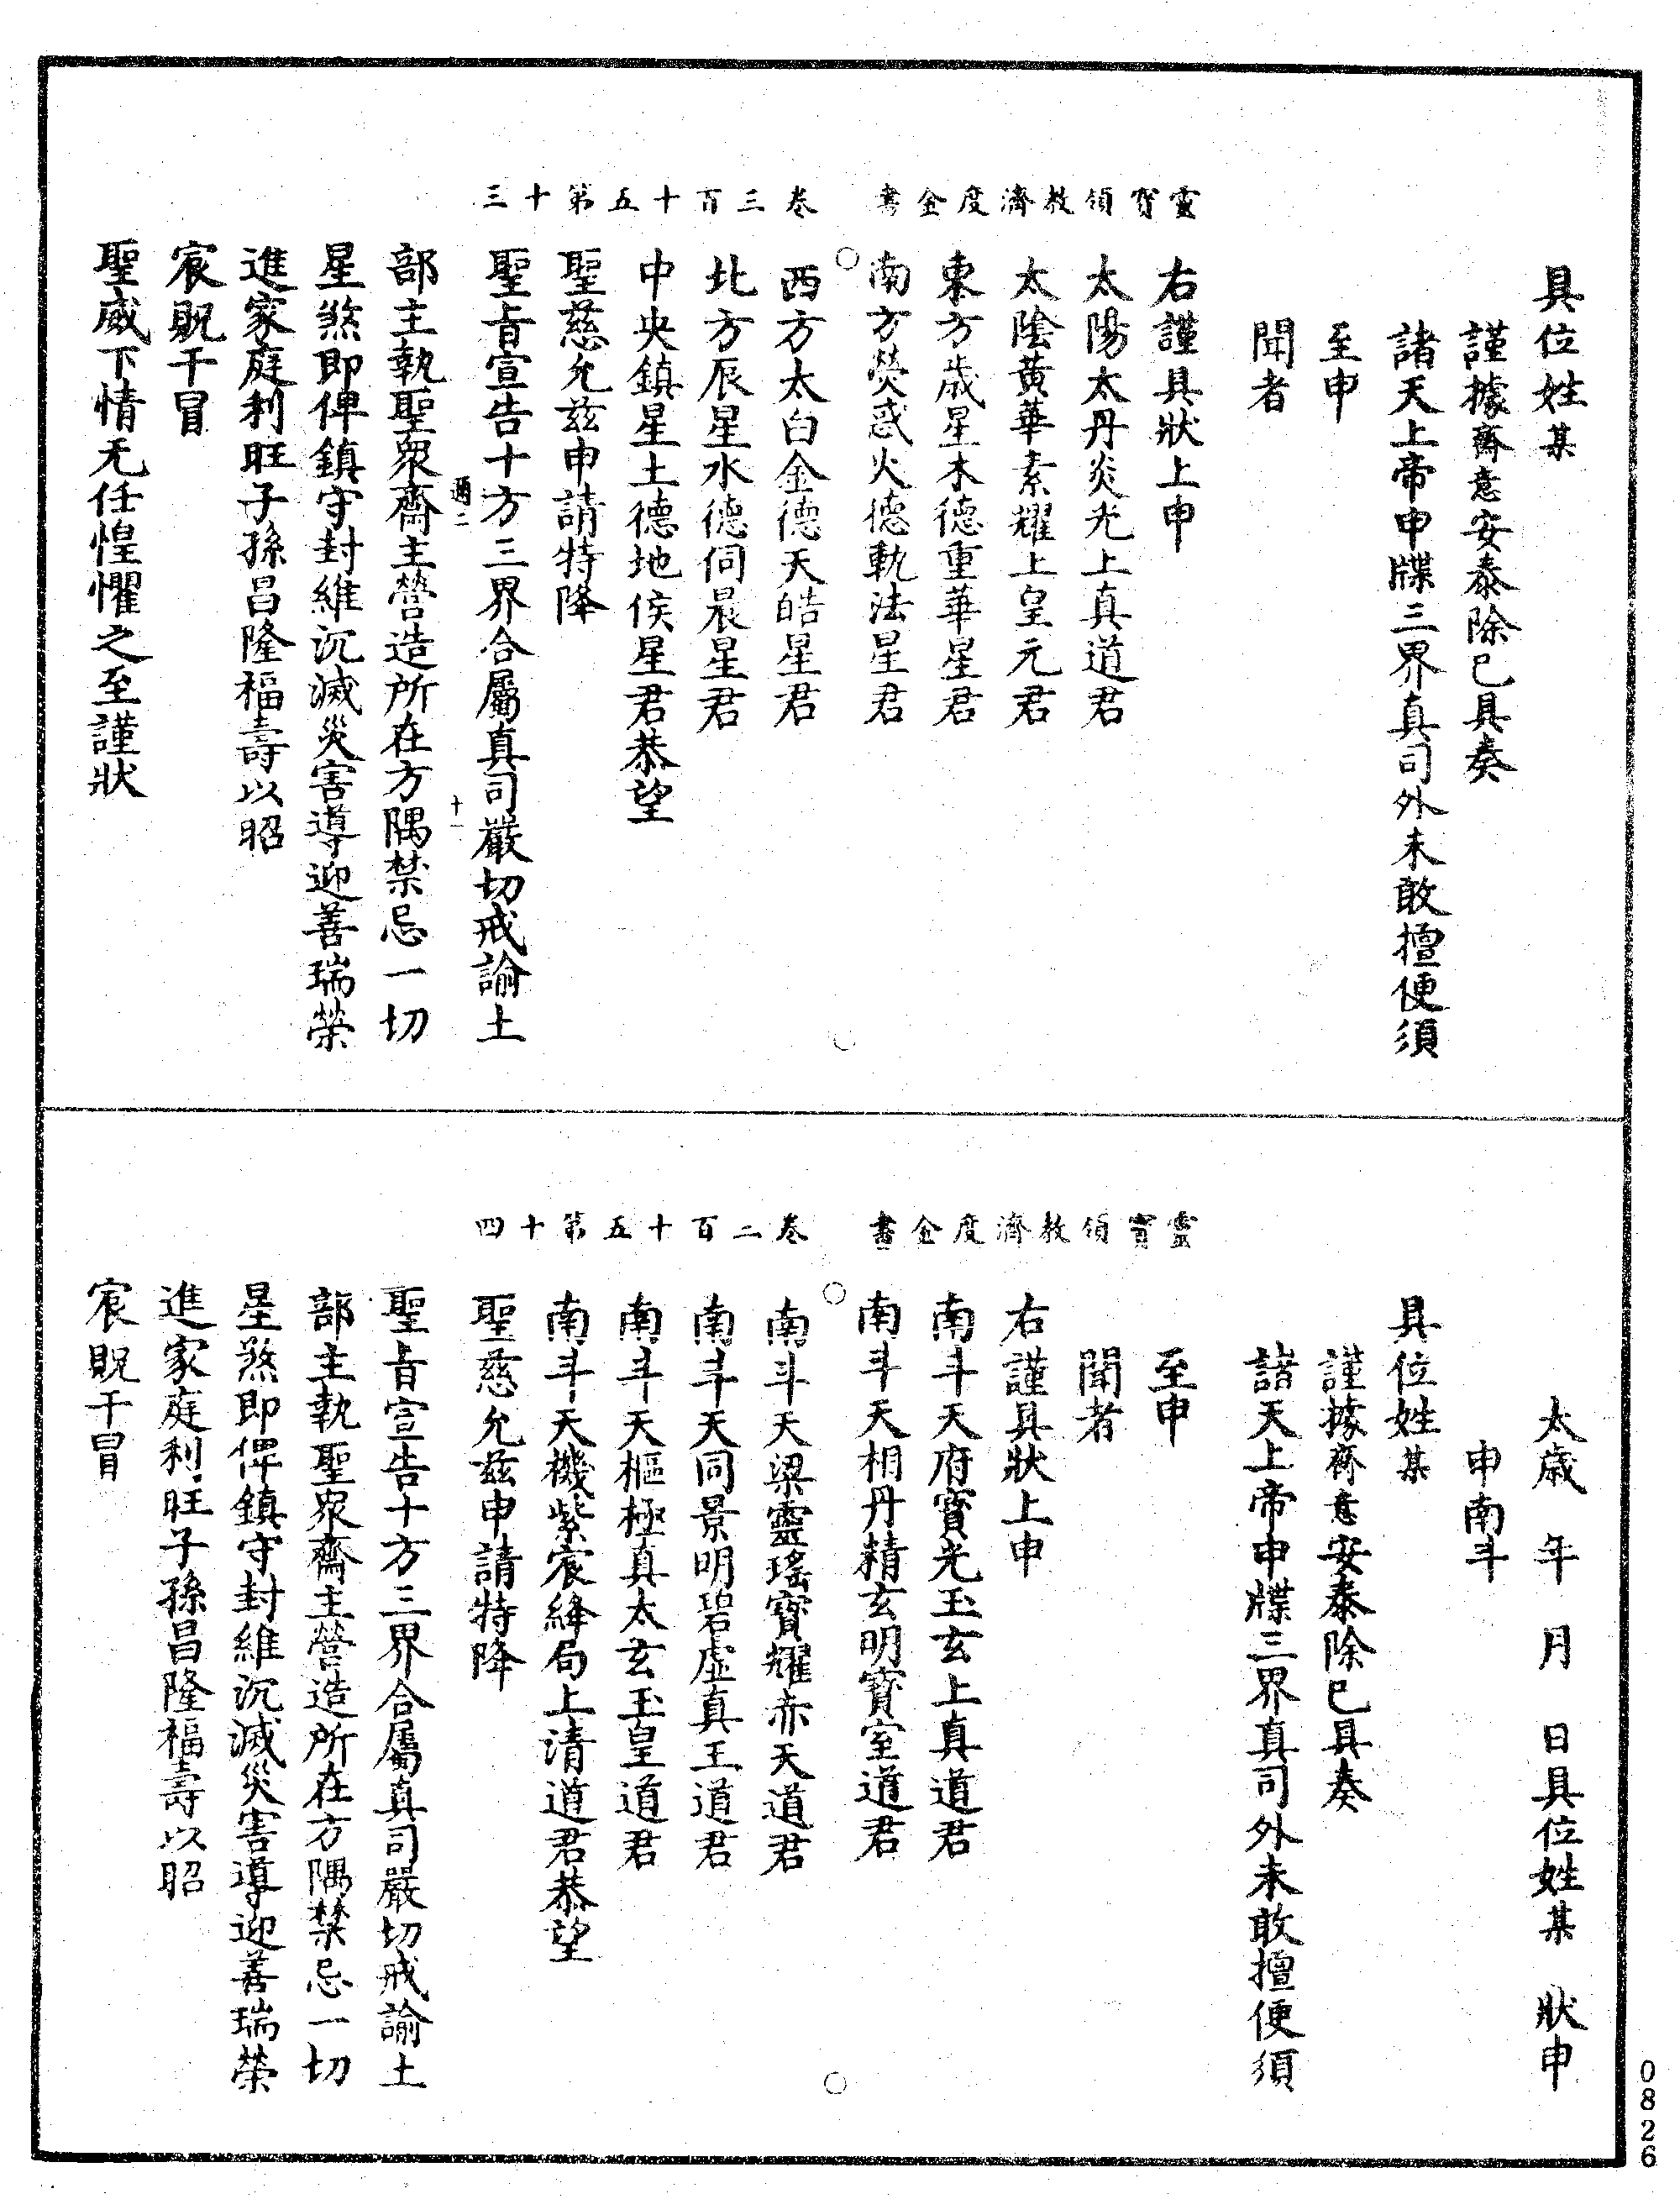 靈寶領教濟度金書　卷三百十五第十三
具位姓某
謹據齋意安泰除已具奏
諸天上帝申牒三界真司外未敢擅便須
至申
聞者
右謹具狀上申
太陽太丹炎光上真道君
太陰黃華素耀上皇元君
東方歲星木德重華星君
南方熒惑火德執法星君
西方太白金德天皓星君
北方辰星水德伺晨星君
中央鎮星土德地侯星君恭望
聖慈允茲申請特降
聖旨宣告十方三界合屬真司嚴切戒諭土
通二　十一
部主執聖眾齋主營造所在方隅禁忌一切
星煞即俾鎮守封維沉滅災害導迎善瑞榮
進家庭利旺子孫昌隆福壽以昭
宸貺干冒
聖威下情无任惶懼之至謹狀
靈寶領教濟度金書　卷二百十五第十四
太歲　年　月　日具位姓某　狀申
申南斗
具位姓某
謹據齋意安泰除已具奏
諸天上帝申牒三界真司外未敢擅便須
至申
聞者
右謹具狀上申
南斗天府寶光玉玄上真道君
南斗天相丹精玄明寶室道君
南斗天梁靈瑤寶耀赤天道君
南斗天同景明碧虛真王道君
南斗天樞極真太玄玉皇道君
南斗天機紫宸絳局上清道君恭望
聖慈允茲申請特降
聖旨宣告十方三界合屬真司嚴切戒諭土
部主執聖眾齋主營造所在方隅禁忌一切
星煞即俾鎮守封維沉滅災害導迎善瑞榮
進家庭利旺子孫昌隆福壽以昭
宸貺干冒
0826